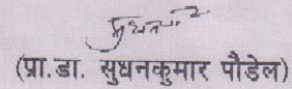 (प्रा.डा. सुधनकुमार पौडेल)